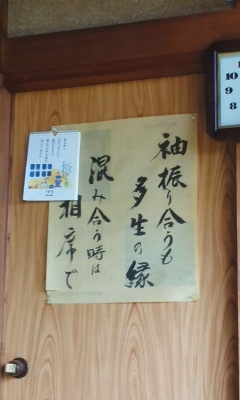 袖振り合うも
多生の縁
混み合う時は
相席で
22
10
9
8